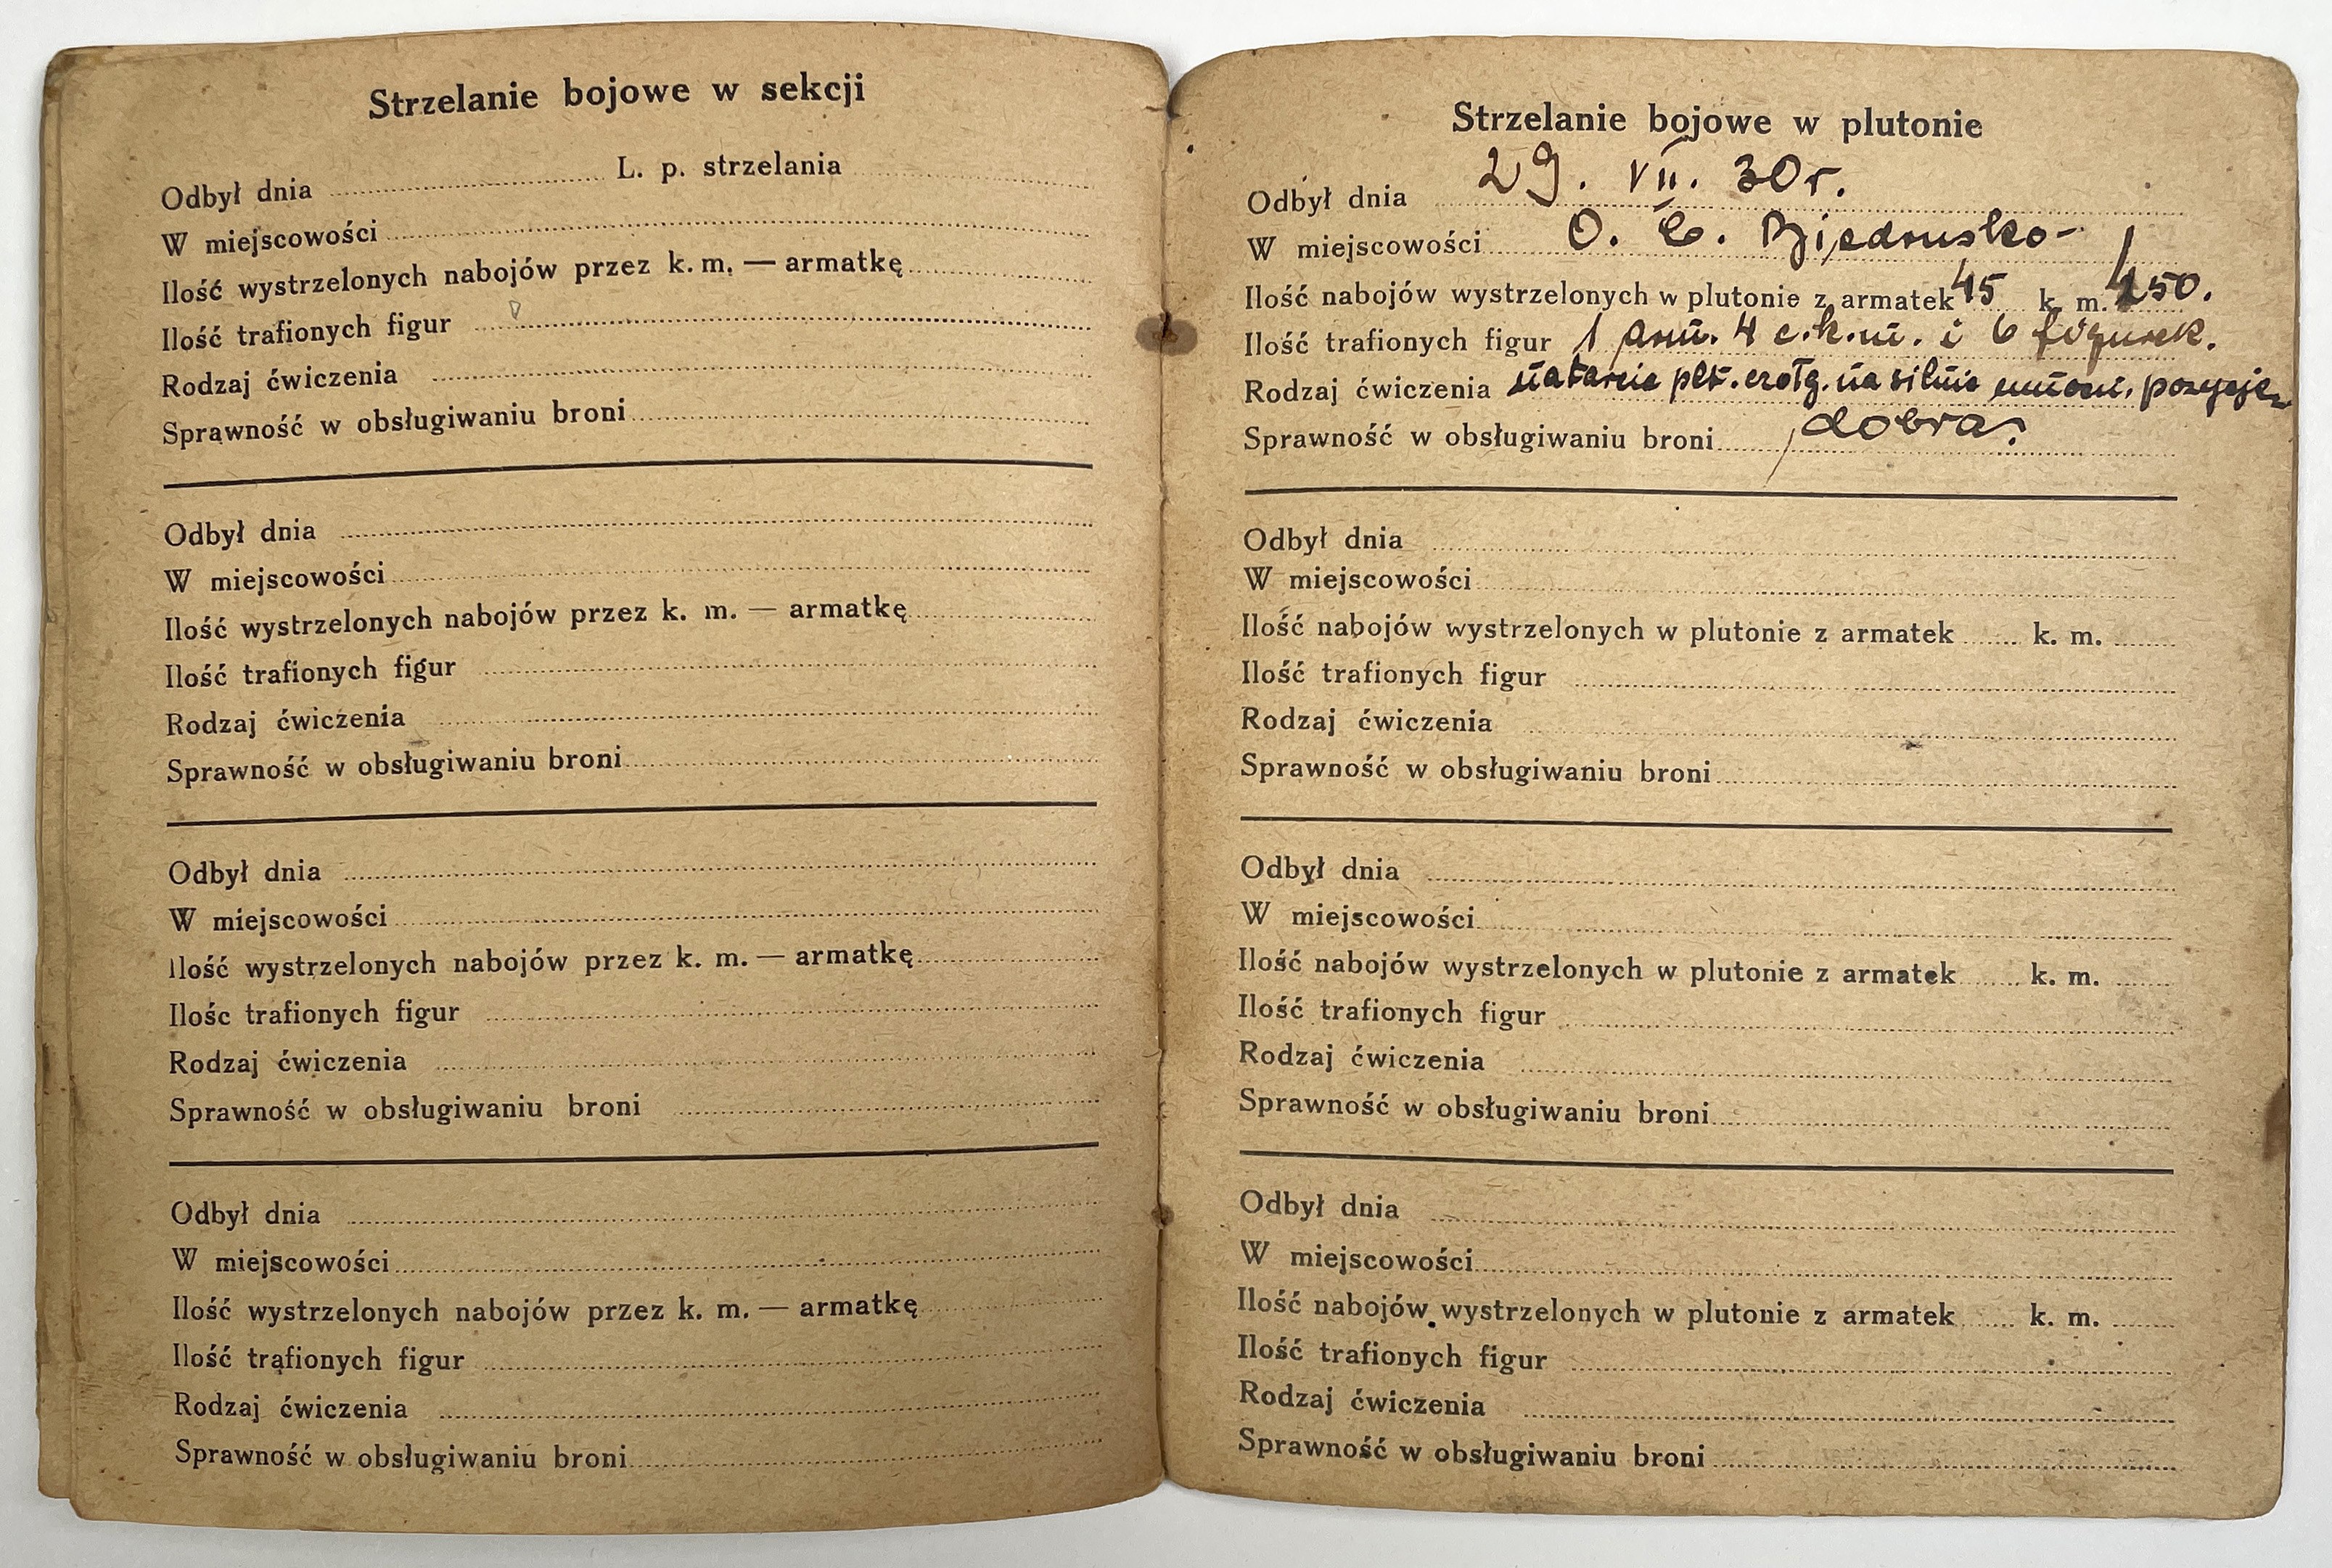 Strzelanie bojowe w sekcji
Odbył dnia L. p. strzelania
W miejscowości
Ilość wystrzelonych nabojów przez k. m. — armatkę
Ilość trafionych figur
Rodzaj ćwiczenia
Sprawność w obsługiwaniu broni
Odbył dnia
W miejscowości
Ilość wystrzelonych nabojów przez k. m. — armatkę
Ilość trafionych figur
Rodzaj ćwiczenia
Sprawność w obsługiwaniu broni
Odbył dnia
W miejscowości
Ilość wystrzelonych nabojów przez k. m. — armatkę
Ilośc trafionych figur
Rodzaj ćwiczenia
Sprawność w obsługiwaniu broni
Odbył dnia
W miejscowości
Ilość wystrzelonych nabojów przez k. m. — armatkę
Ilość trafionych figur
Rodzaj ćwiczenia
Sprawność w obsługiwaniu broni
Strzelanie bojowe w plutonie
Odbył dnia 29. VII. 30 r.
W miejscowości O. C. Biedrusko-
Ilość nabojów wystrzelonych w plutonie z armatek 45 k. m. 150.
Ilość trafionych figur 1 arm. 4 c.k.m. i 6 figurek.
Rodzaj ćwiczenia natarcie plt. czołg. na silnie umocn. pozycje
Sprawność w obsługiwaniu broni dobra.
Odbył dnia
W miejscowości
Ilość nabojów wystrzelonych w plutonie z armatek k. m.
Ilość trafionych figur
Rodzaj ćwiczenia
Sprawność w obsługiwaniu broni
Odbył dnia
W miejscowości
Ilość nabojów wystrzelonych w plutonie z armatek k. m.
Ilość trafionych figur
Rodzaj ćwiczenia
Sprawność w obsługiwaniu broni
Odbył dnia
W miejscowości
Ilość nabojów wystrzelonych w plutonie z armatek k. m.
Ilość trafionych figur
Rodzaj ćwiczenia
Sprawność w obsługiwaniu broni